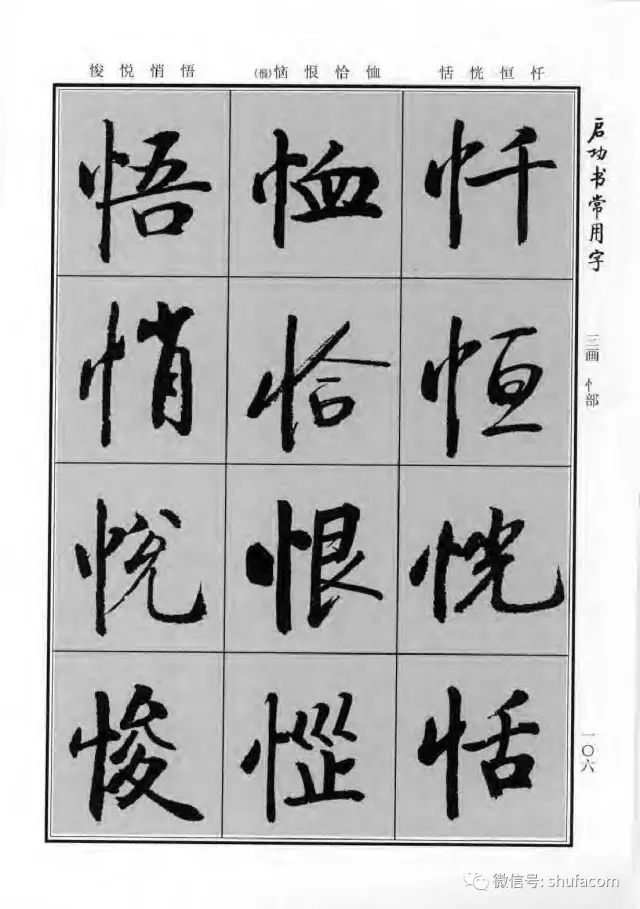 启功书常用字
三画 忄部
一〇六
忏恒恍恬
恤恰恨恼(惱)
悟悄悦悛
忏
恒
恍
恬
恤
恰
恨
悟
悄
悦
悛
微信号: shufacom